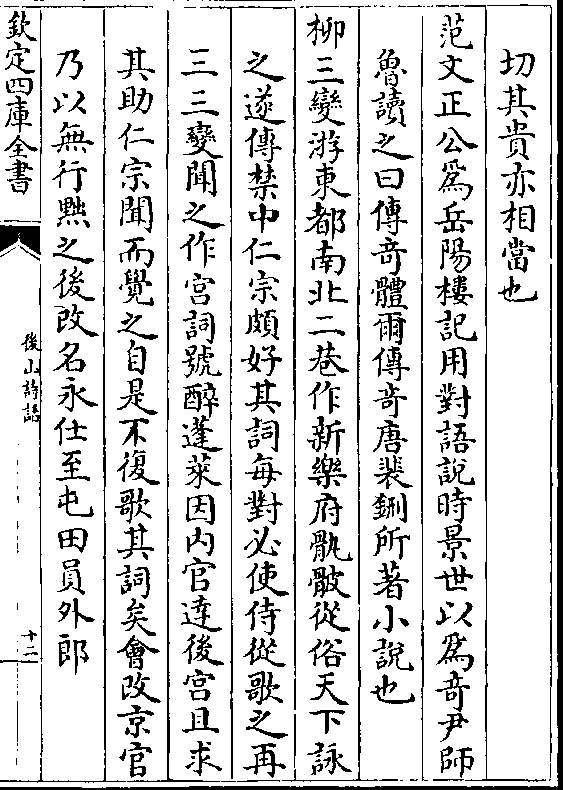 切其貴亦相當也
范文正公為岳陽樓記用對語說時景世以為奇尹師
魯讀之曰傳竒體爾傳竒唐裴鉶所著小說也
柳三變游東都南北二巷作新樂府骩骳從俗天下詠
之遂傳禁中仁宗頗好其詞每對必使侍從歌之再
三三變聞之作宮詞號醉蓬萊因内官達後宮且求
其助仁宗聞而覺之自是不復歌其詞矣會改京官
乃以無行黜之後改名永仕至屯田員外郎
欽定四庫全書
後山詩話
十二